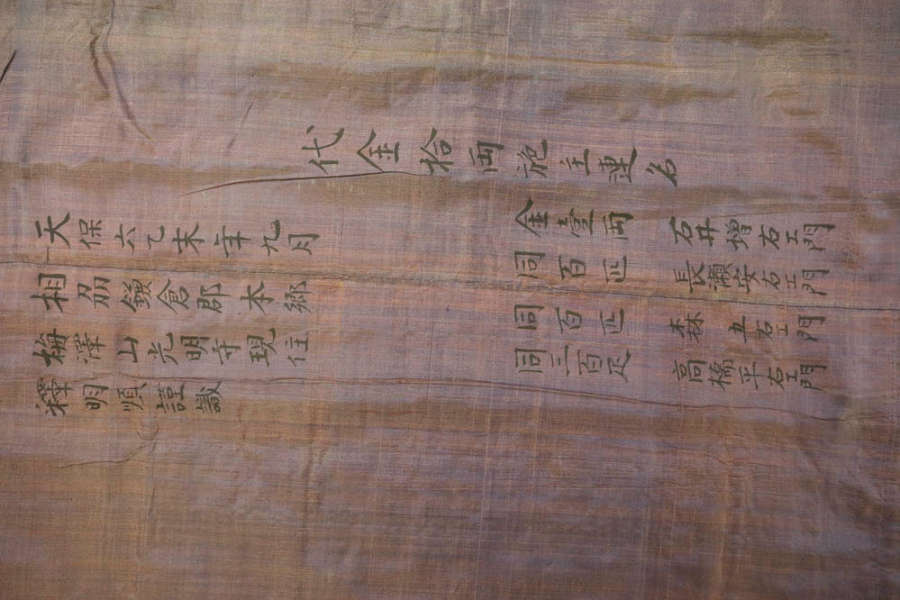 代金拾両施主連名
天保六乙未年九月
相刕鎌倉郡本郷
梅澤山光明寺現住
釋明順謹識
金壹両 石井増右エ門
同百疋 長瀬安右エ門
同百疋 森五右エ門
同三百疋 高橋平右エ門